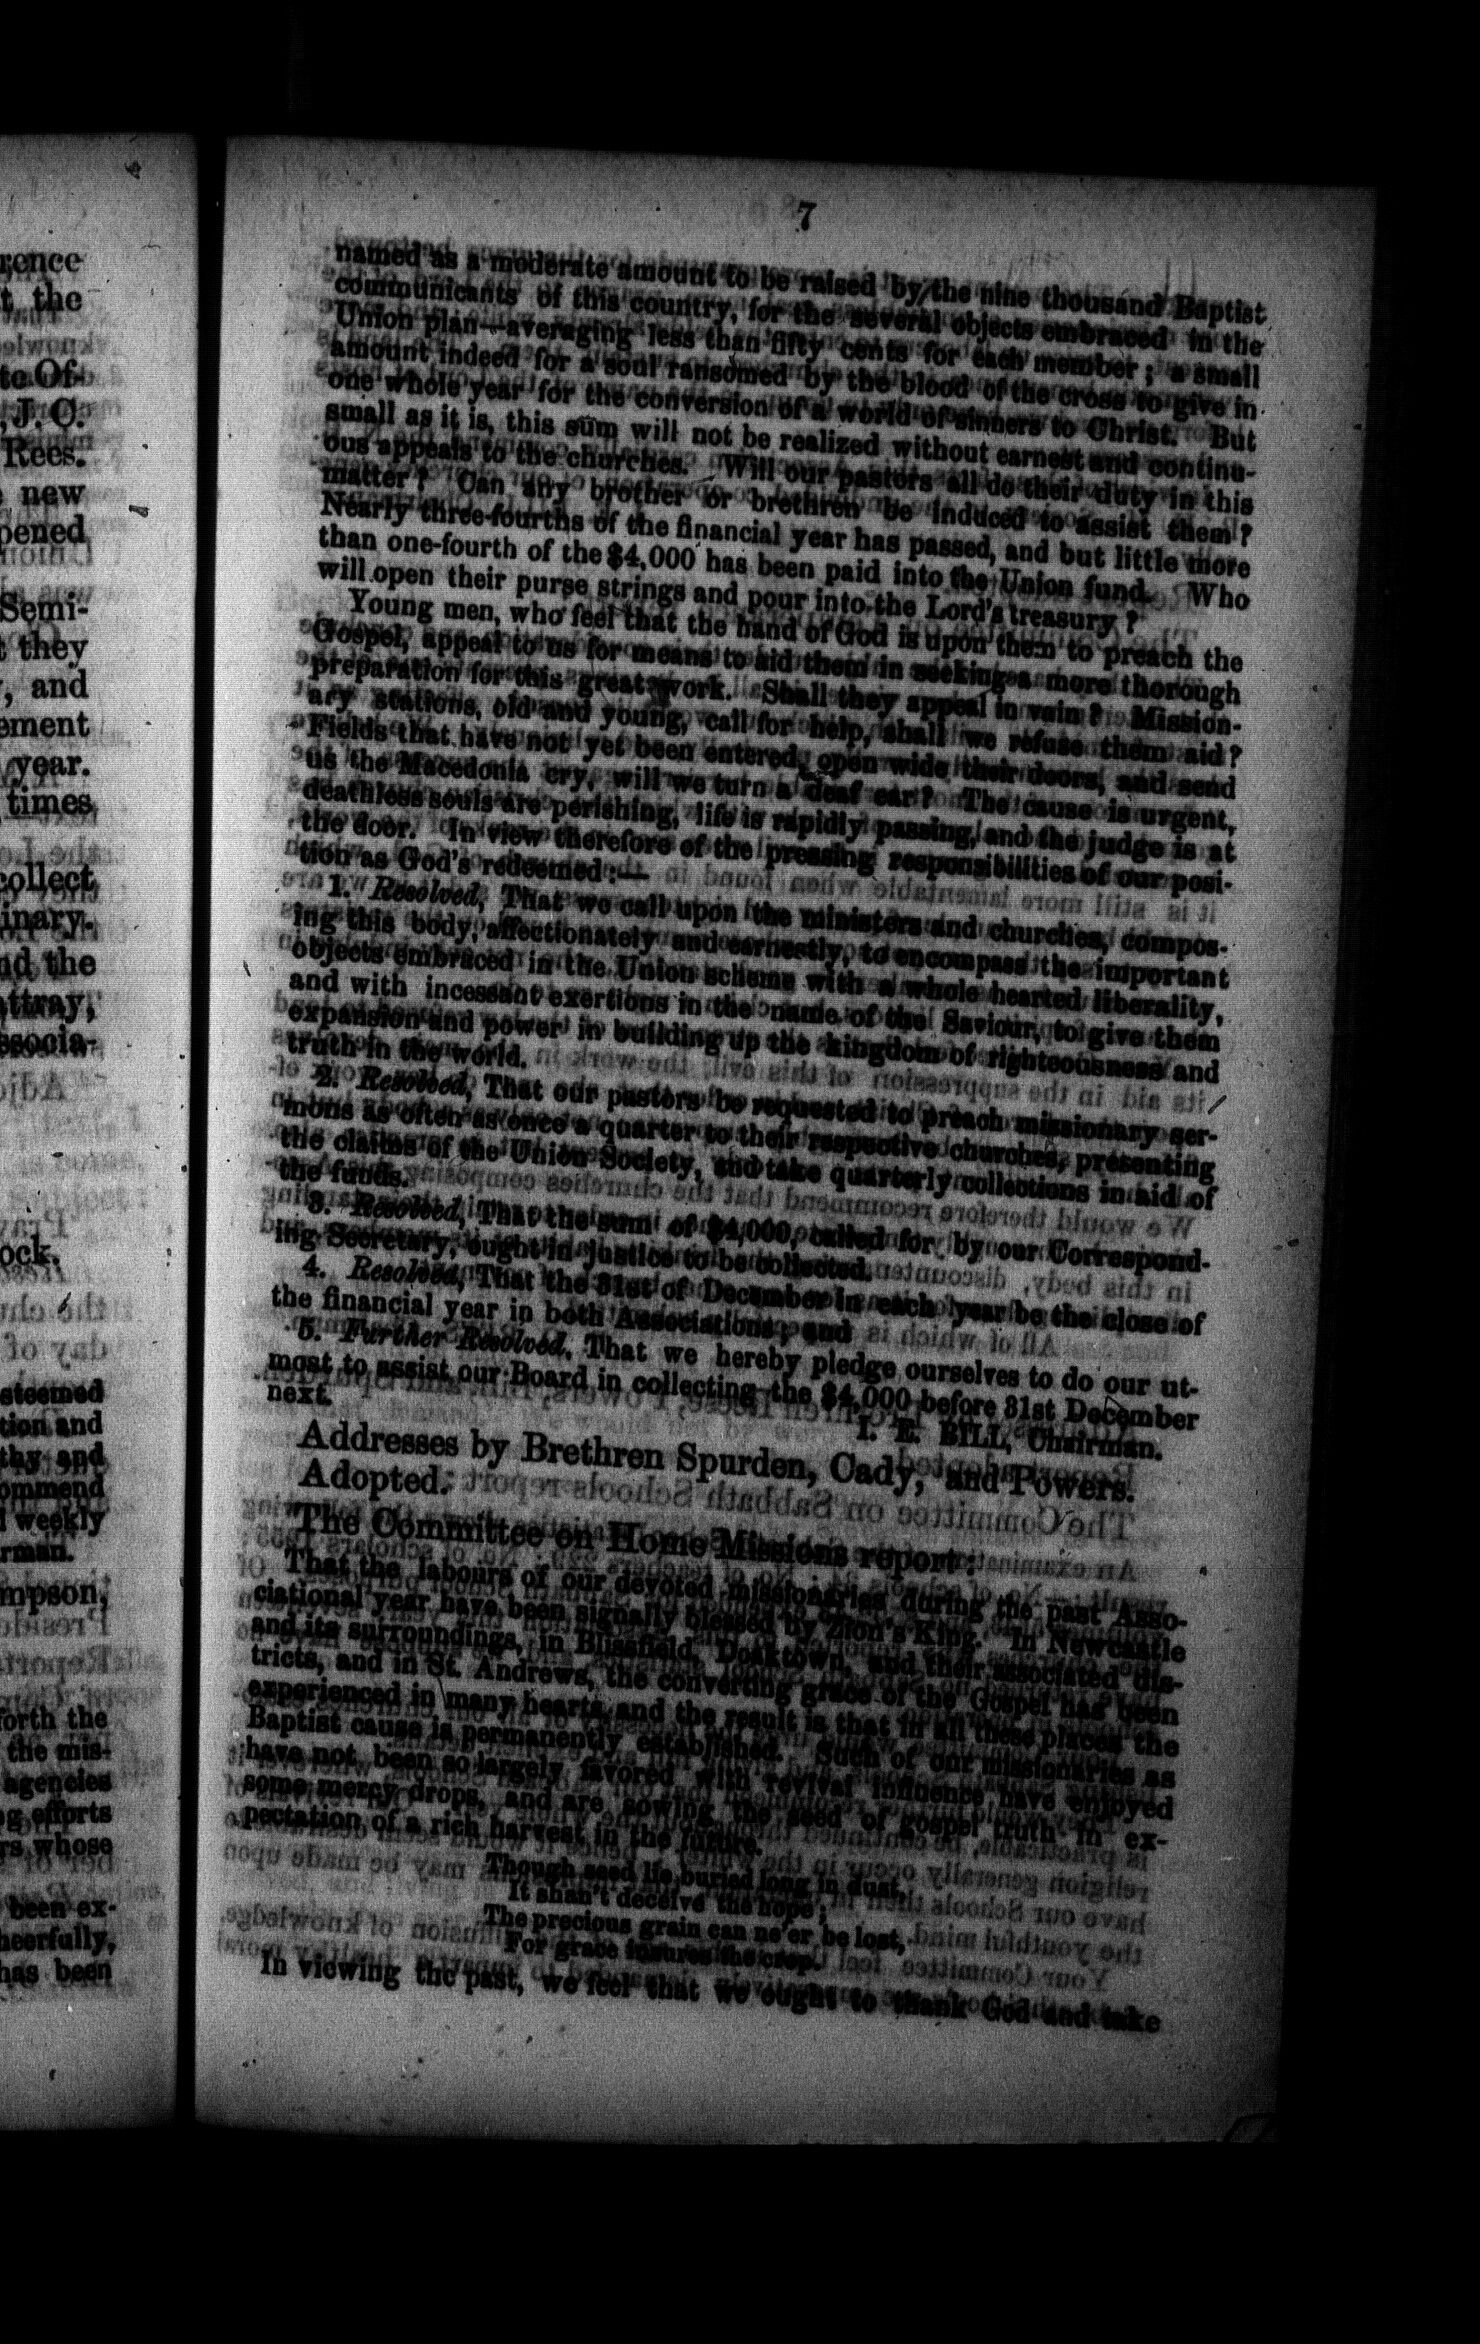 rence
t the
te Of-
, J. C.
Rees.
e new
pened
Semi-
t they
, and
ement
year.
times
collect
inary.
nd the
attray,
ssocia-
ock.
steemed
tion and
thy and
ommend
l weekly
rman.
mpson,
forth the
the mis-
agencies
ng efforts
rs whose
been ex-
heerfully,
has been
7
named as a moderate amount to be raised by the nine thousand Baptist
communicants of this country, for the several objects embraced in the
Union plan—averaging less than fifty cents for each member; a small
amount indeed for a soul ransomed by the blood of the cross to give in
one whole year for the conversion of a world of sinners to Christ. But
small as it is, this sum will not be realized without earnest and continu-
ous appeals to the churches. Will our pastors all do their duty in this
matter? Can any brother or brethren be induced to assist them?
Nearly three-fourths of the financial year has passed, and but little more
than one-fourth of the $4,000 has been paid into the Union fund. Who
will open their purse strings and pour into the Lord's treasury?
Young men, who feel that the hand of God is upon them to preach the
Gospel, appeal to us for means to aid them in seeking a more thorough
preparation for this great work. Shall they appeal in vain? Mission-
ary stations, old and young, call for help, shall we refuse them aid?
Fields that have not yet been entered, open wide their doors, and send
us the Macedonia cry, will we turn a deaf ear? The cause is urgent,
deathless souls are perishing, life is rapidly passing, and the judge is at
the door. In view therefore of the pressing responsibilities of our posi-
tion as God's redeemed:—
1. Resolved, That we call upon the ministers and churches, compos-
ing this body, affectionately and earnestly, to encompass the important
objects embraced in the Union scheme with a whole hearted liberality,
and with incessant exertions in the name of the Saviour, to give them
expansion and power in building up the kingdom of righteousness and
truth in the world.
2. Resolved, That our pastors be requested to preach missionary ser-
mons as often as once a quarter to their respective churches, presenting
the claims of the Union Society, and take quarterly collections in aid of
the funds.
3. Resolved, That the sum of $4,000, called for by our Correspond-
ing Secretary, ought in justice to be collected.
4. Resolved, That the 31st of December in each year be the close of
the financial year in both Associations; and
5. Further Resolved. That we hereby pledge ourselves to do our ut-
most to assist our Board in collecting the $4,000 before 31st December
next.
I. E. BILL, Chairman.
Addresses by Brethren Spurden, Cady, and Powers.
Adopted.
The Committee on Home Missions report:
That the labours of our devoted missionaries during the past Asso-
ciational year have been signally blessed by Zion's King. In Newcastle
and its surroundings, in Blissfield, Doaktown, and their associated dis-
tricts, and in St. Andrews, the converting grace of the Gospel has been
experienced in many hearts, and the result is that in all these places the
Baptist cause is permanently established. Such of our missionaries as
have not been so largely favored with revival influence have enjoyed
some mercy drops, and are sowing the seed of gospel truth in ex-
pectation of a rich harvest in the future.
Though seed lie buried long in dust,
It shan't deceive the hope;
The precious grain can ne'er be lost,
For grace insures the crop.
In viewing the past, we feel that we ought to thank God and take